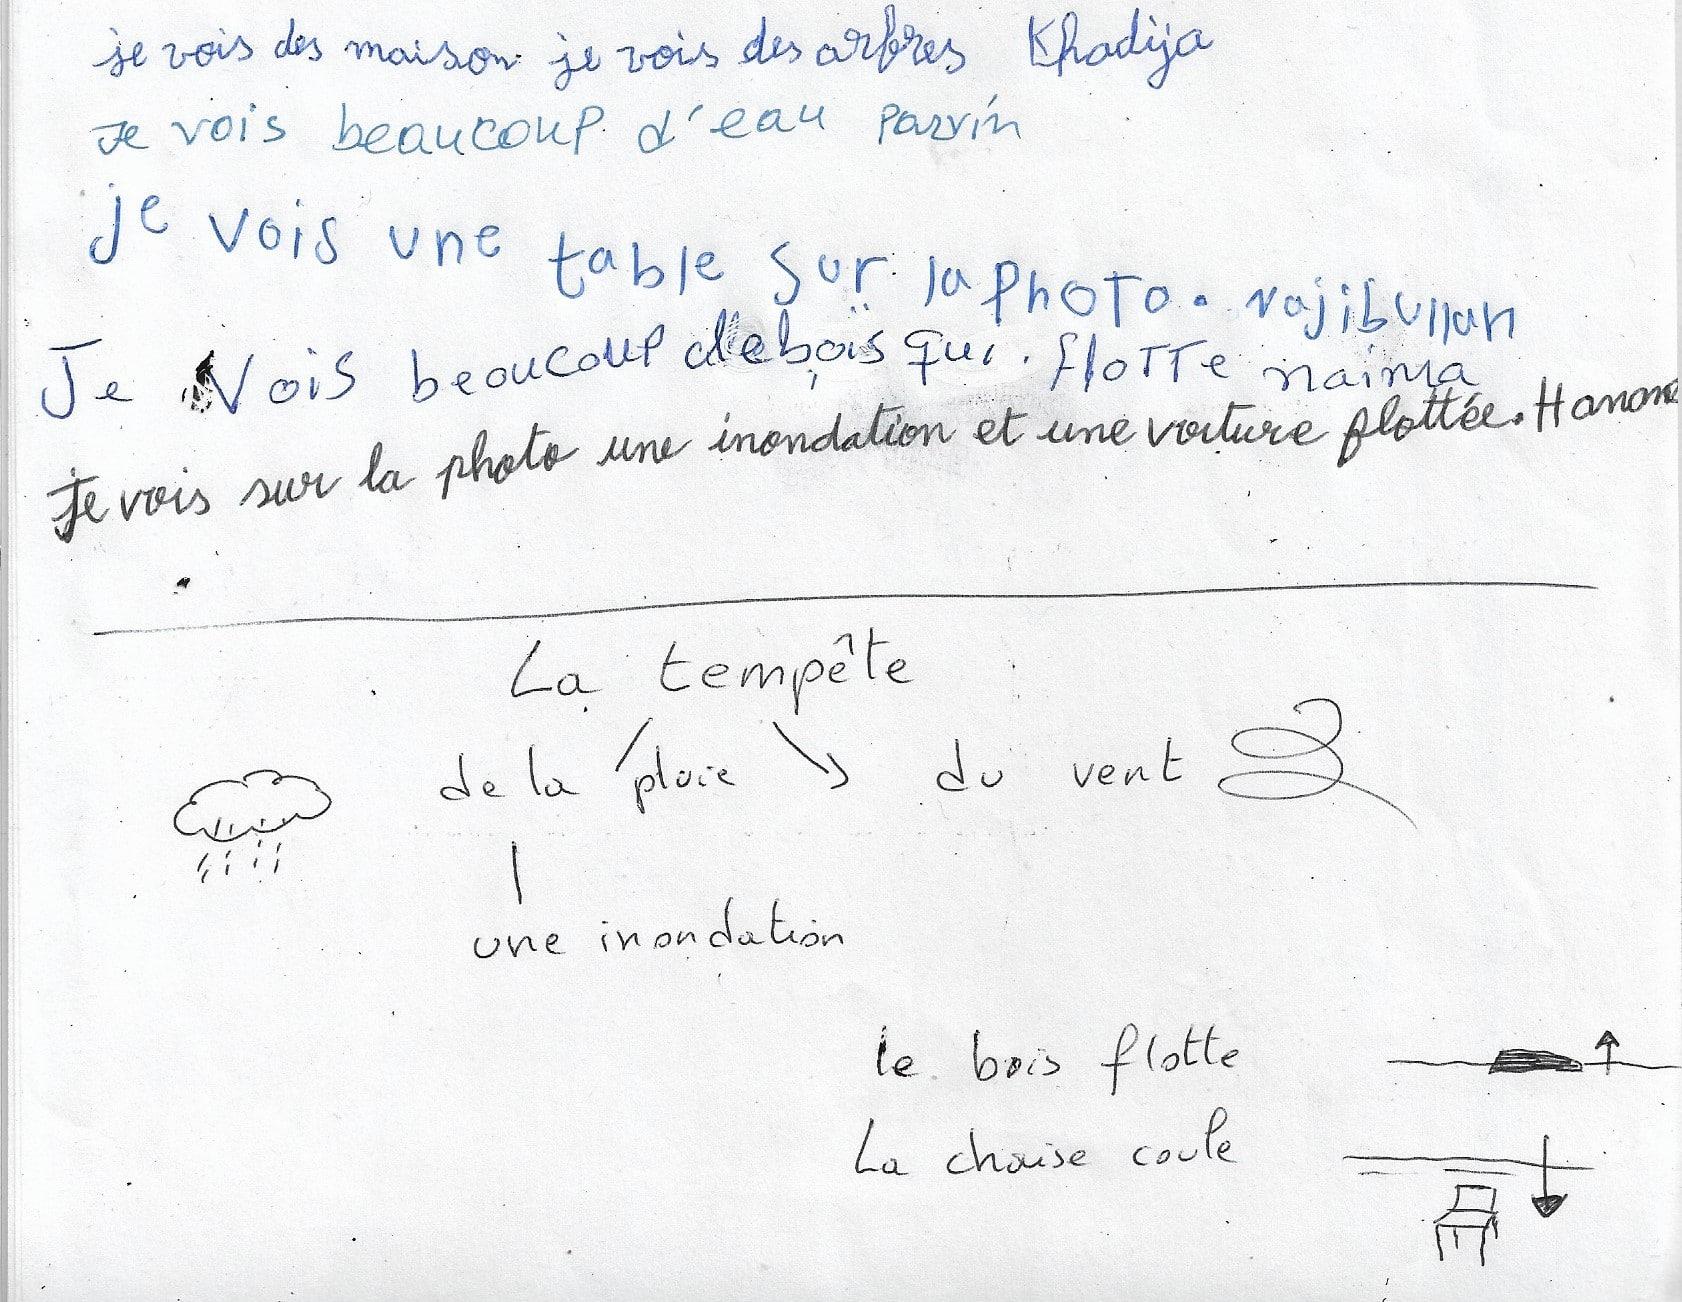 je vois des maison je vois des arbres Khadija
Je vois beaucoup d'eau Parvin
je vois une table sur la photo. najibullah
Je vois beaucoup de bois qui flotte naima
Je vois sur la photo une inondation et une voiture flottée. Hanane
La tempête
de la pluie du vent
une inondation
le bois flotte
La chaise coule